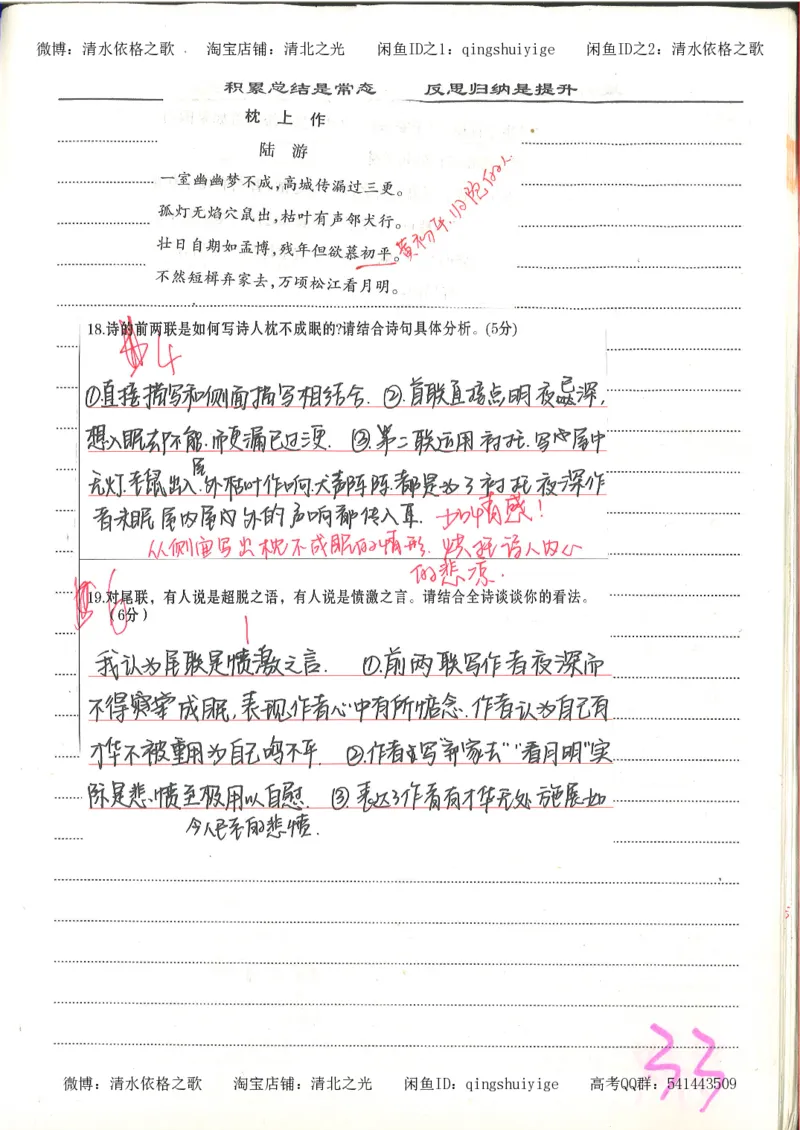 微博：清水依格之歌 淘宝店铺：清北之光 闲鱼ID之1：qingshuiyige 闲鱼ID之2：清水依格之歌
积累总结是常态 反思归纳是提升
枕上作
陆游
一室幽幽梦不成，高城传漏过三更。
孤灯无焰穴鼠出，枯叶有声邻犬行。
壮日自期如孟博，残年但欲慕初平。
黄初平.归隐的人
不然短楫弃家去，万顷松江看月明。
18.诗的前两联是如何写诗人枕不成眠的?请结合诗句具体分析。(5分)
4
①直接描写和侧面描写相结合.②.首联直接点明夜已深,
想入眠却不能.而更漏已过三更.③.第二联运用衬托.写
无灯.老鼠出入.屋外枯叶作响.犬声阵阵.都是为了衬托夜深作
者未眠屋内屋外的声响都传入耳.
情感!
从侧面写出枕不成眠的情形.烘托诗人内心
的悲凉.
19.对尾联，有人说是超脱之语，有人说是愤激之言。请结合全诗谈谈你的看法。
(6分)
我认为尾联是愤激之言.①.前两联写作者夜深而
不得成眠,表现作者心中有所惦念.作者认为自己有
才华不被重用为自己鸣不平.②.作者写"弃家去""看月明"实
际是悲愤至极用以自慰.③.表达了作者有才华无处施展如
今的悲愤.
33
微博：清水依格之歌 淘宝店铺：清北之光 闲鱼ID：qingshuiyige 高考QQ群：541443509